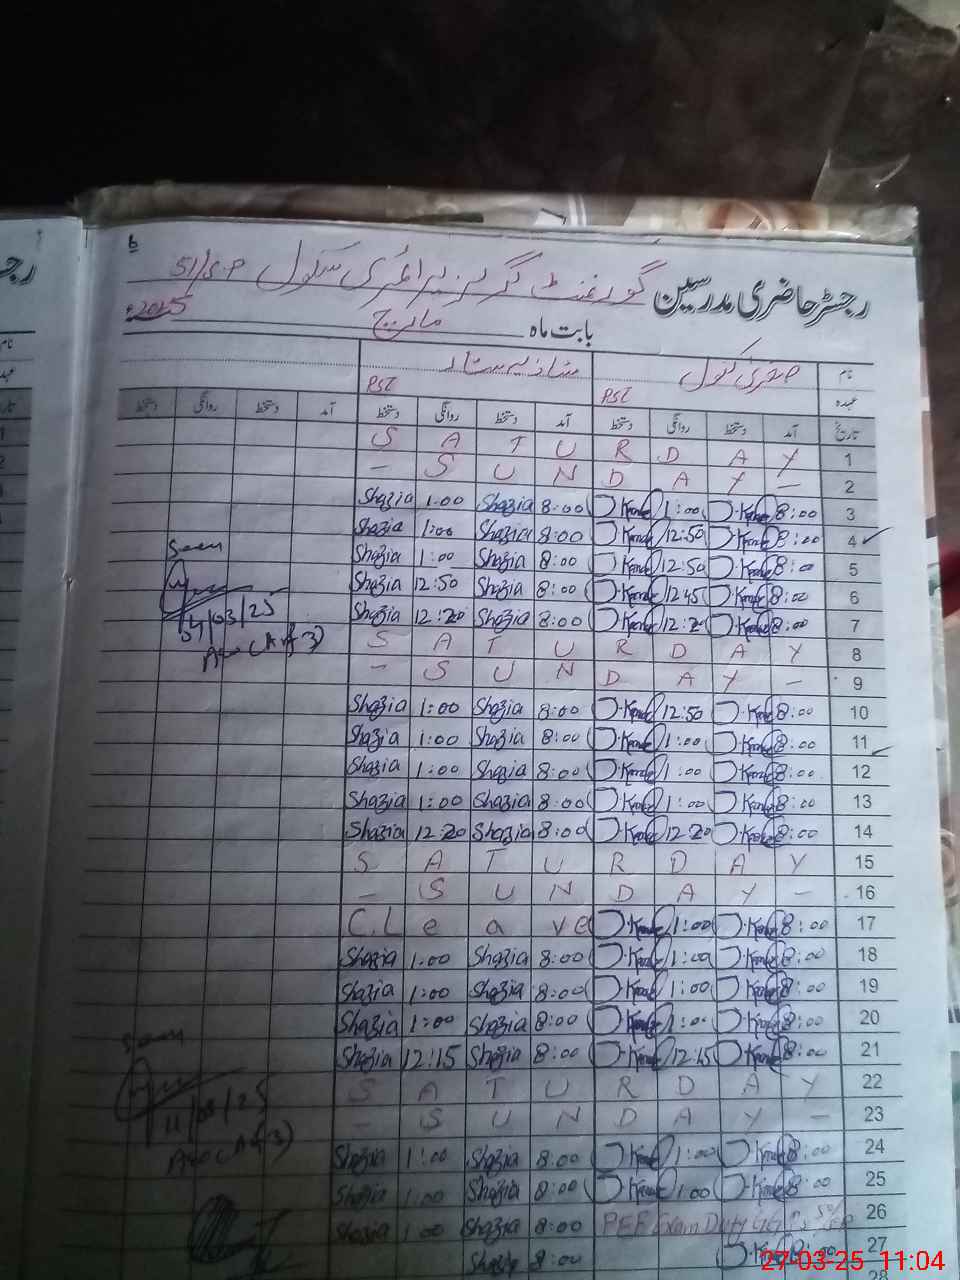 6
رجسٹر حاضری مدرسین گورنمنٹ گرلز پرائمری سکول 51/S.P
بابت ماہ مارچ 2025
نام صغریٰ کنول شازیہ ستار
عہدہ PST PST
تاریخ آمد دستخط روانگی دستخط آمد دستخط روانگی دستخط آمد دستخط روانگی دستخط
S A T U R D A Y 1
– S U N D A Y – 2
Shazia 1:00 Shazia 8:00 1:00 8:00 3
Shazia 1:00 Shazia 8:00 12:50 8:00 4
Shazia 1:00 Shazia 8:00 12:50 8:00 5
Shazia 12:50 Shazia 8:00 12:45 8:00 6
Shazia 12:20 Shazia 8:00 12:20 8:00 7
Seen
04/03/25
S A T U R D A Y 8
– S U N D A Y – 9
Shazia 1:00 Shazia 8:00 12:50 8:00 10
Shazia 1:00 Shazia 8:00 1:00 8:00 11
Shazia 1:00 Shazia 8:00 1:00 8:00 12
Shazia 1:00 Shazia 8:00 1:00 8:00 13
Shazia 12:20 Shazia 8:00 12:20 8:00 14
S A T U R D A Y 15
– S U N D A Y – 16
C.L e a ve 1:00 8:00 17
Shazia 1:00 Shazia 8:00 1:00 8:00 18
Shazia 1:00 Shazia 8:00 1:00 8:00 19
Shazia 1:00 Shazia 8:00 1:00 8:00 20
Shazia 12:15 Shazia 8:00 12:15 8:00 21
Seen
11/03/25
S A T U R D A Y 22
– S U N D A Y – 23
Shazia 1:00 Shazia 8:00 1:00 8:00 24
Shazia 1:00 Shazia 8:00 1:00 8:00 25
Shazia 1:00 Shazia 8:00 PEF Exam Duty 26
Shazia 8:00 27
28
27-03-25 11:04